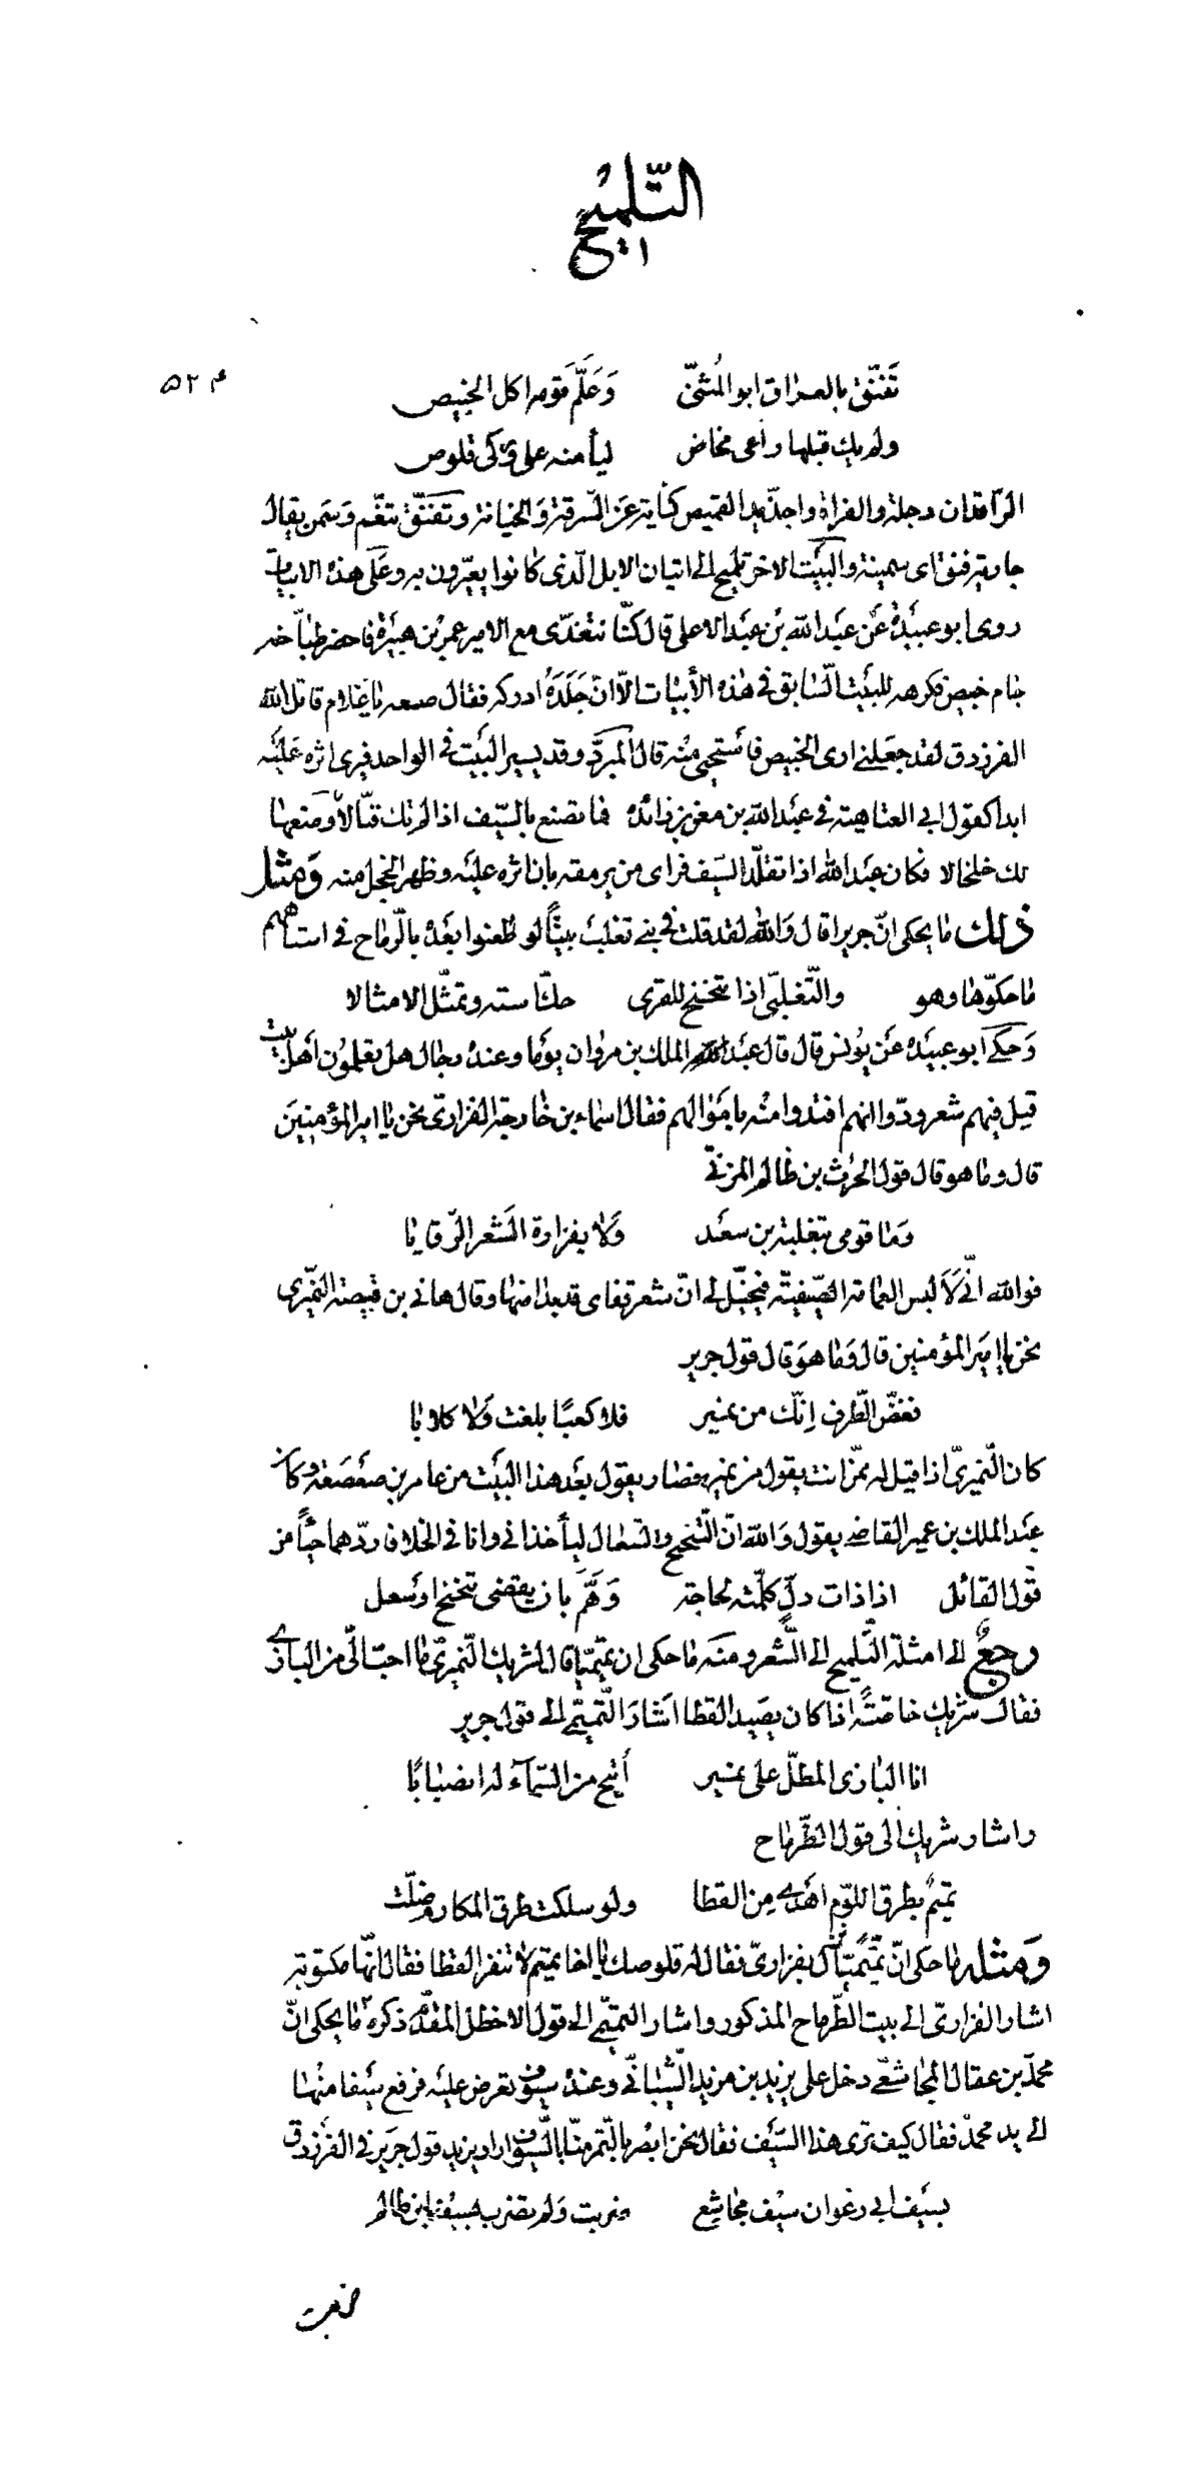 التّلميح
٥٢٤
تَفَنّق بالعراق ابو المُثنّى وَعَلَّمَ قومه اكل الخبيص
ولم يك قبلها راعى مخاض ليأمنه على وركى قلوص
الرّافدان دجلة والفراة واحذّ يد القميص كناية عن السّرقة وَالخيانة وتَفَنّق تنعّم وَسمن يقال
جارية فنق اى سمينة والبَيْت الاخر تلميح الى اتيان الابل الّذى كانوا يعيّرون به وعَلى هذه الابيات
روى ابو عبيدة عَن عبد الله بن عبد الاعلى قال كنّا نتغدّى مع الامير عمر بن هبيرة فاحضر طبّاخه
جام خبيص فكرهه للبيت السّابق فى هذه الأبيات الّا انّ جَلَدَهُ ادركه فقال ضعه يا غلام قاتل الله
الفرزدق لقد جعلنى ارى الخبيص فاستحيى منه قال المبرّد وقد يسير البَيت فى الواحد فيرى اثره عليه
ابدا كقول ابى العتاهية فى عبد الله بن معن بن زائدة فما تصنع بالسّيف اذا لم تك قتّالا وصغها
لك خلخالا فكان عبد الله اذا تقلّد السّيف فراى من يرمقه بان اثره عليه وظهر الخجل منه وَمثل
ذلك ما يحكى انّ جريرا قال وَالله لقد قلت فى بنى تغلب بيتًا لو طعنوا بعده بالرّماح فى استاههم
ما حكّوها وهو والتّغلبىّ اذا تنحنح للقرى حكّ استه وتمثّل الامثالا
وَحكى ابو عبيده عَن يونس قال قال عبد الملك بن مروان يومًا وعنده رجال هل تعلمون اهل بيت
قيل فيهم شعر ودّوا انهم افتدوا منه باموالهم فقال اسماء بن خارجة الفزارىّ نحن يا امير المؤمنين
قال وما هو قال قول الحرث بن ظالم المرّىّ
وَمَا قومى بثعلبة بن سعد وَلا بفزارة الشعر الرّقابا
فوالله انّى لَأَلبس العمامة الصّفيقة فيخيّل لى انّ شعر قفاى قد بدا منها وقال هانى بن قبيصة النّميرى
نحن يا امير المؤمنين قال وَما هوَ قال قول جرير
فغضّ الطّرف إنّك من نمير فلا كعبًا بلغت وَلا كلابا
كان النّميرىّ اذا قيل له ممّن انت يقول من نمير فصار يقول بعد هذا البَيْت من عامر بن صعصعة وكان
عبد الملك بن عمير القاضى يقول وَالله انّ التّنحنح والسّعال ليأخذانى وانا فى الخلاء فاردّهما حيًّا من
قول القائل اذا ذات دلّ كلّمته لحاجة وَهَمّ بان يقضى تنحنح او سعل
رجعٌ الى امثلة التّلميح الى الشّعر ومنه ما حكى ان تميميّا قال لشريك النّميرىّ ما احبّ الىّ من البازى
فقال شريك خاصّةً اذا كان يصيد القطا اشار التّميمى الى قول جرير
انا البازى المطلّ على نمير أتيح من السّماء لها انصبابًا
واشار شريك الى قول الطّرمّاح
تميمٌ بطرق اللوّم اهدى من القطا ولو سلكت طرق المكارم ضلّت
وَمثله ما حكى انّ تميميًّا نزل بفزارىّ فقال له قلوصك يا اخا تميم لا تنفر القطا فقال انّها مكتوبة
اشار الفزارىّ الى بيت الطّرماح المذكور واشار التميمىّ الى قول الاخطل المقدّم ذكره ما يحكى انّ
محمّد بن عقال المجاشعىّ دخل على يزيد بن مزيد الشّيبانىّ وعنده سيوف تعرض عليه فرفع سيفا منها
الى يد محمّد فقال كيف ترى هذا السّيف فقال نحن ابصر بالتّمر منّا بالسّيوف اراد يزيد قول جرير فى الفرزدق
بسيف ابى رغوان سيف مجاشع ضربت وَلم تضرب بسيف ابن ظالم
ضربت